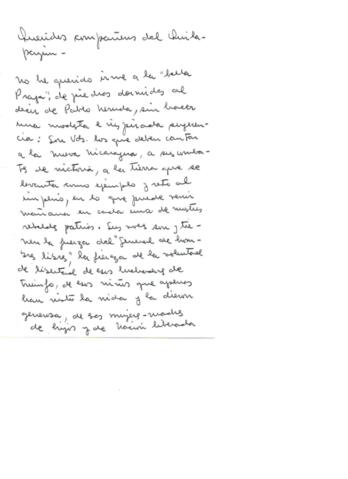 Queridos compañeros del Quila-
payún -
No he querido irme a la "bella
Praga", de piedras dormidas al
decir de Pablo Neruda, sin hacer
una modesta e inspirada sugeren-
cia: Son Uds. los que deben cantar
a la nueva Nicaragua, a sus comba-
tes de victoria, a la tierra que se
levanta como ejemplo y reto al
imperio, en lo que puede venir
mañana en cada una de nuestras
rebeldes patrias. Sus voces son y tie-
nen la fuerza del "General de hom-
bres libres", la fuerza de la voluntad
de libertad de esos luchadores de
triunfo, de esos niños que apenas
han visto la vida y la dieron
generosa, de esas mujeres-madres
de hijos y de nación liberada